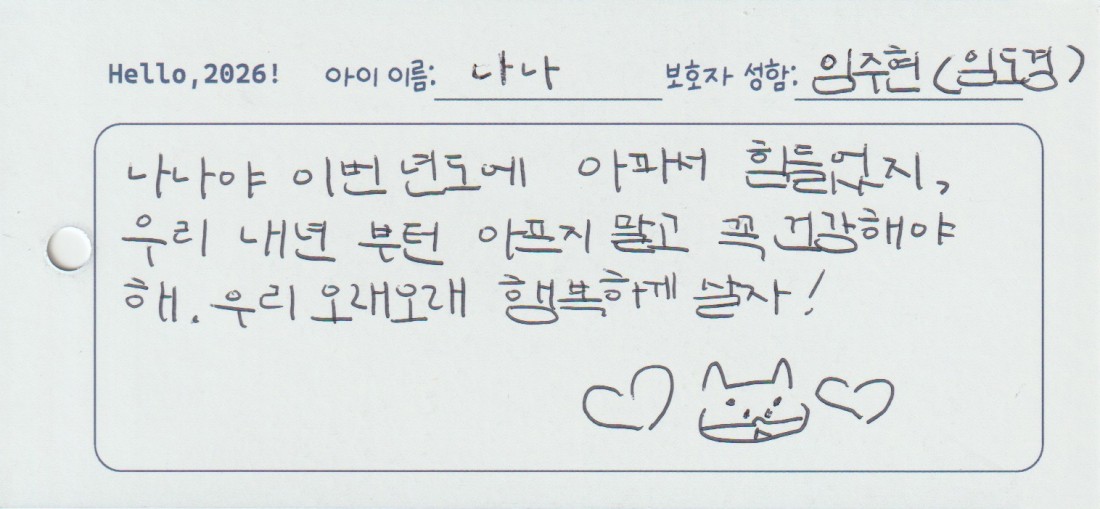 Hello,2026! 아이 이름: 나나 보호자 성함: 임주현 (임도경)
나나야 이번 년도에 아파서 힘들었지,
우리 내년 부턴 아프지 말고 꼭 건강해야
해. 우리 오래오래 행복하게 살자!